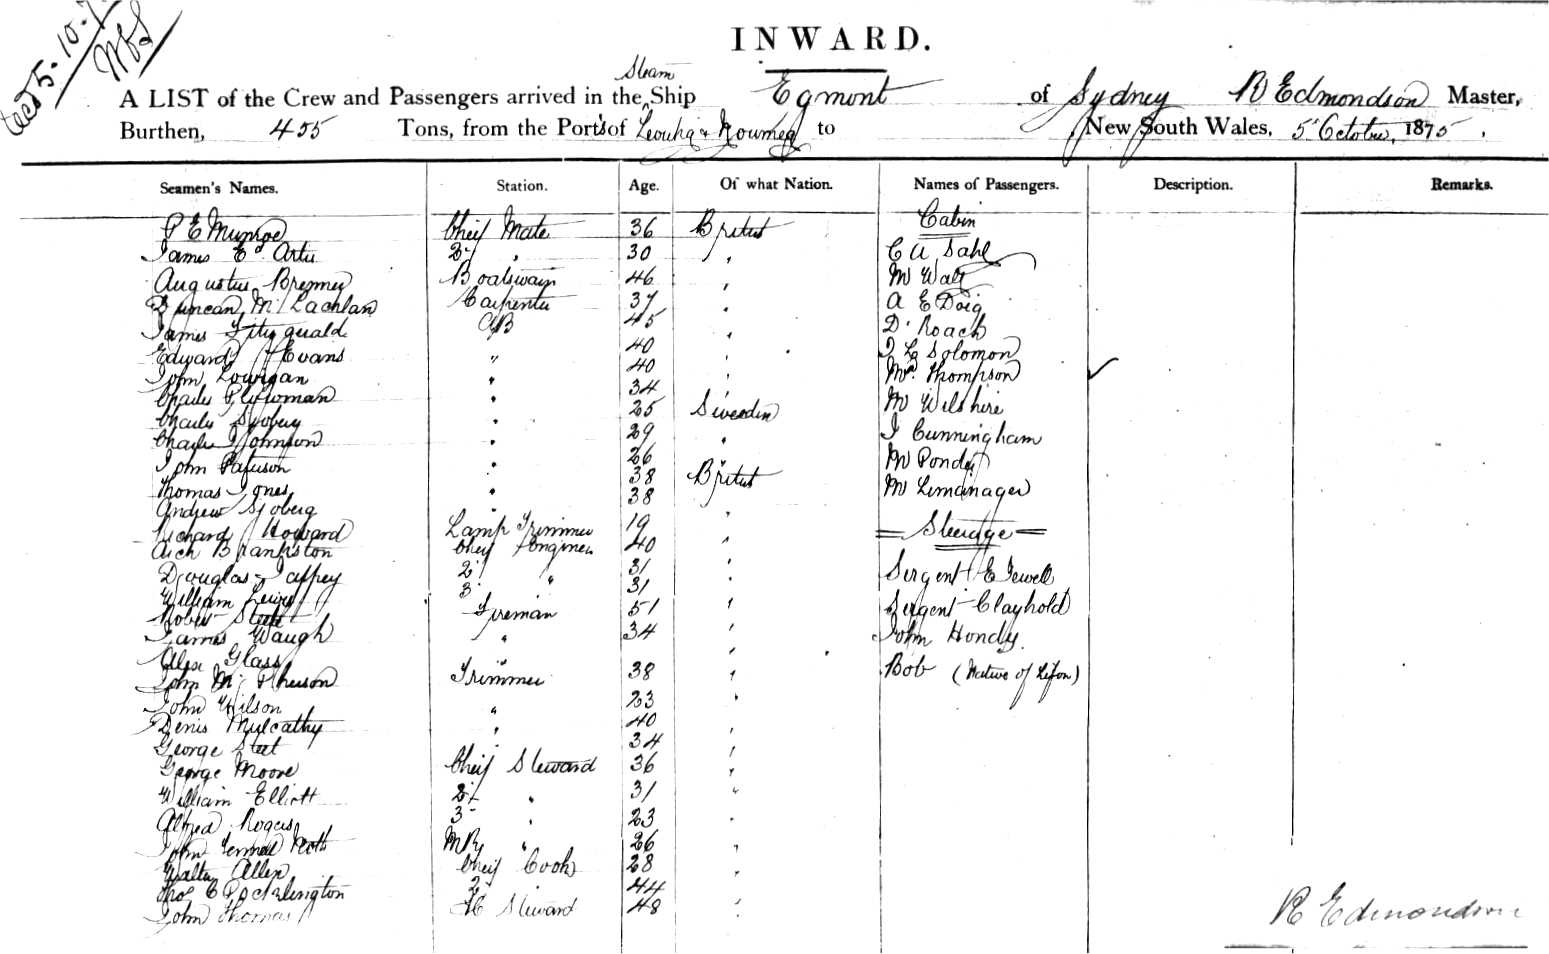 5-10-7
INWARD.
Steam
A LIST of the Crew and Passengers arrived in the Ship Egmont of Sydney R Edmondson Master,
Burthen, 455 Tons, from the Ports of Levuka & Noumea to New South Wales, 5 October, 1875.
Seamen's Names. Station. Age. Of what Nation. Names of Passengers. Description. Remarks.
P E Munroe Cheif Mate 36 Britist Cabin
James Ed. 2 " 30 " C A Sahl
Augustus Bremner Boatswain 46 " Mr Walt
Duncan McLachlan Carpenter 37 " A E Doig
James Fitzgerald AB 45 " D. Roach
Edward J Evans " 40 " J L Solomon
John Lowigan " 40 " Mrs. Thompson
Charles Plowman " 34 " Mr Wilshire
Charles Sjoberg " 25 Sweeden J Cunningham
Charles Johnson " 29 "
John Paterson " 26 " Mr Ponder
Thomas Jones " 38 Britist Mr Limanager
Andrew Sjoberg " 38 "
Richard Howard Lamp Trimmer 19 " Steerage
Arch Brankston Cheif Engineer 40 "
Douglas Jaffrey 2 " 31 " Sergent E Jewell
William Lewis 3 31 " Sergent Clayhold
Robert Steele Fireman 51 "
James Waugh " 34 " John Hondy
Alex Glass " "
John McPherson Trimmer 38 " Bob (Native of Lifou)
John Wilson " 23 "
Denis Mulcathy " 40 "
George Steel " 34 "
George Moore Cheif Steward 36 "
William Elliott 2 " 31 "
Alfred Rogers 3 " 23 "
John " 26 "
Walter Allen Cheif Cook 28 "
Thos E Pocklington 2 " 44 "
John Thomas Steward 48 "
R Edmondson